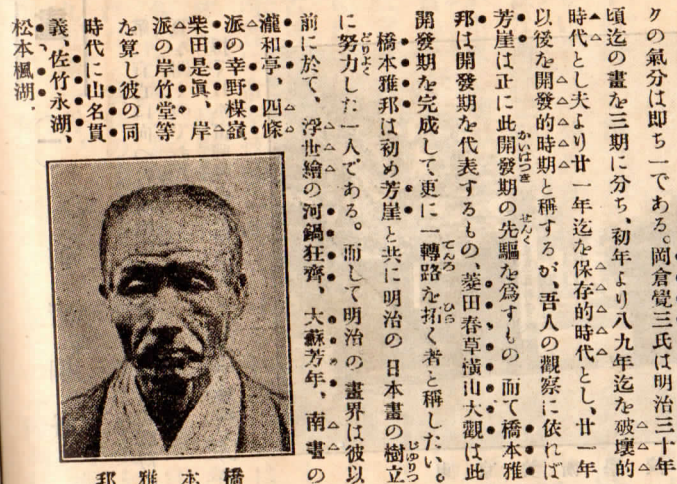 クの氣分は即ち一である。岡倉覺三氏は明治三十年
頃迄の畫を三期に分ち、初年より八九年迄を破壞的
時代とし夫より廿一年迄を保存的時代とし、廿一年
以後を開發的時期と稱するが、吾人の觀察に依れば
芳崖は正に此開發期の先驅を爲すもの而て橋本雅
邦は開發期を代表するもの、菱田春草橫山大觀は此
開發期を完成して更に一轉路を拓く者と稱したい。
橋本雅邦は初め芳崖と共に明治の日本畫の樹立
に努力した一人である。而して明治の畫界は彼以
前に於て、浮世繪の河鍋狂齊、大蘇芳年、南畫の
瀧和亭、四條
派の幸野楳嶺
柴田是眞、岸
派の岸竹堂等
を算し彼の同
時代に山名貫
義、佐竹永湖、
松本楓湖、
橋本雅邦